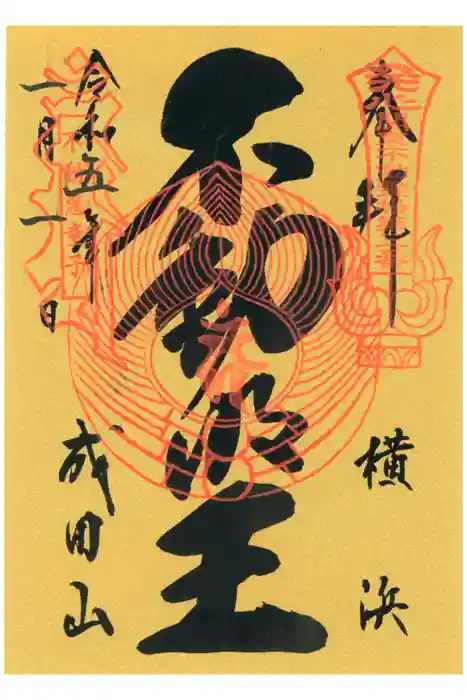 奉拝
横浜
不動明王
令和五年
一月一日
成田山